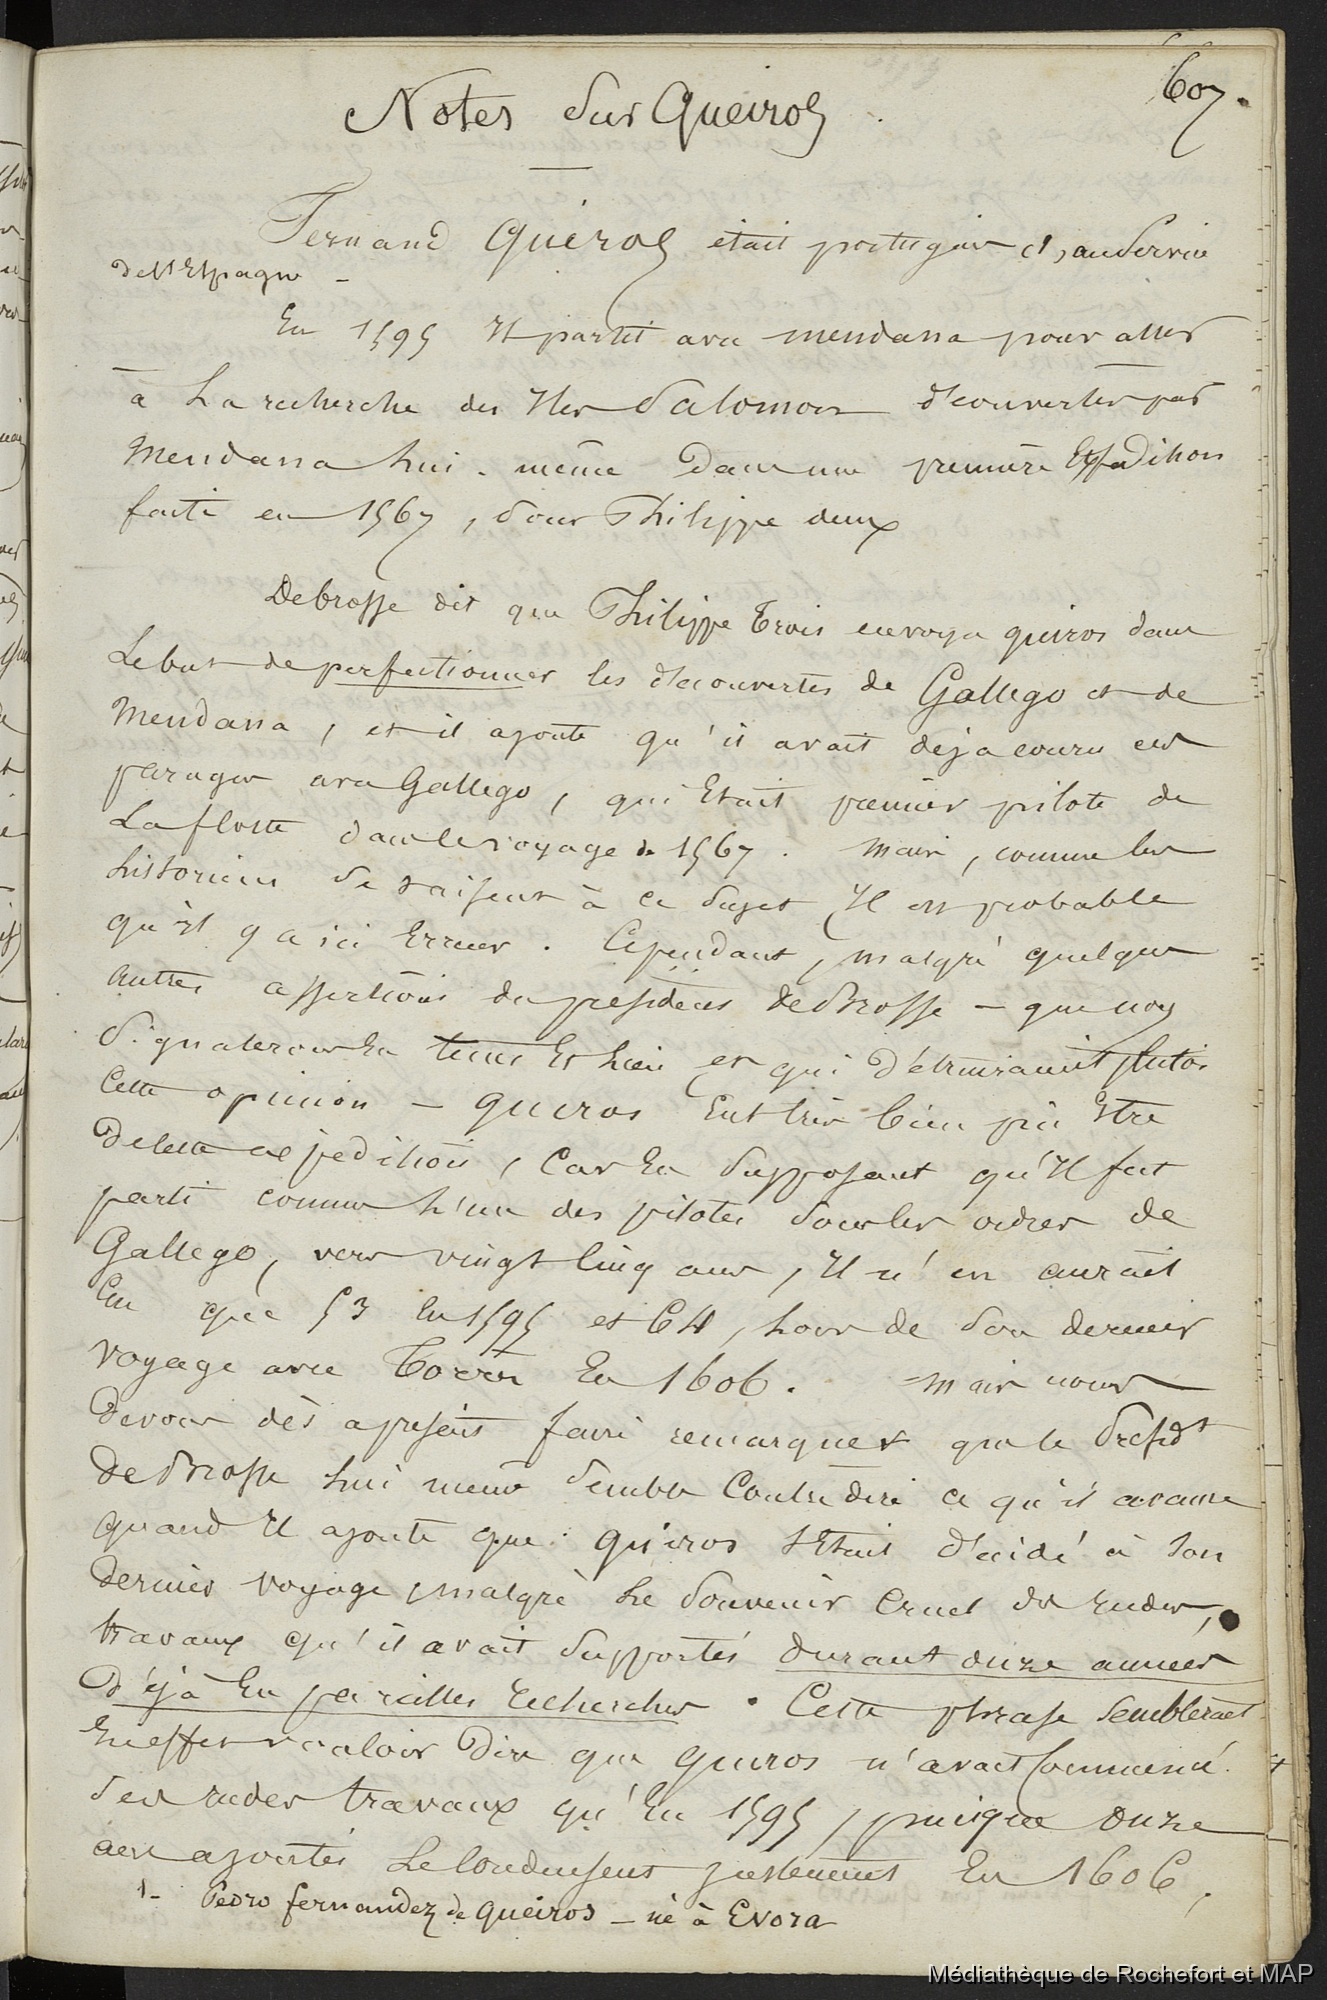 607.
Notes sur Queiros
Fernand Quieros était portugais et, au service
de l'Espagne -
En 1595 Il partit avec mendana pour aller
à La recherche des Iles Salomon découvertes par
Mendana lui-même dans une première Expedition
faite en 1567, sous Philippe deux
Debrosse dit que Philippe trois envoya quiros dans
Le but de perfectionner les découvertes de Gallego et de
Mendana, et il ajoute qu'il avait déja couru ces
parages avec Gallego, qui Etait premier pilote de
La flotte dans le voyage de 1567. Mais, comme les
historiens se taisent à ce sujet Il est probable
qu'il y a ici Erreur. Cependant, malgré quelques
Autres assertions du président deBrosse - que nous
signalerons En tems Et lieu et qui détruiraient plutôt
Cette opinion - Queros Eut très bien pu Etre
De cette expedition, Car En supposant qu'Il fut
parti comme l'un des pilotes sous les ordres de
Gallego, vers vingt Cinq ans, Il n'en aurait
Eu que 53 En 1595 et 64, lors de son dernier
voyage avec Torres En 1606. Mais nous
Devons dès apresent faire remarquer que le Presidt
DeBrosse lui meme semble Contredire ce qu'il avance
quand Il ajoute que: Quiros s'Etait décidé à son
Dernier voyage, malgré Le Souvenir Cruel des rudes,
travaux qu'il avait supportés durant onze années
Déjà En pareilles recherches. Cette phrase semblerait
En effet vouloir Dire que Queros n'avait Commencé
ses rudes travaux qu'En 1595, puisque onze
ans ajoutés Le Conduisent justement En 1606,
1- Pedro fernandez de Queiros - né à Evora
Médiathèque de Rochefort et MAP